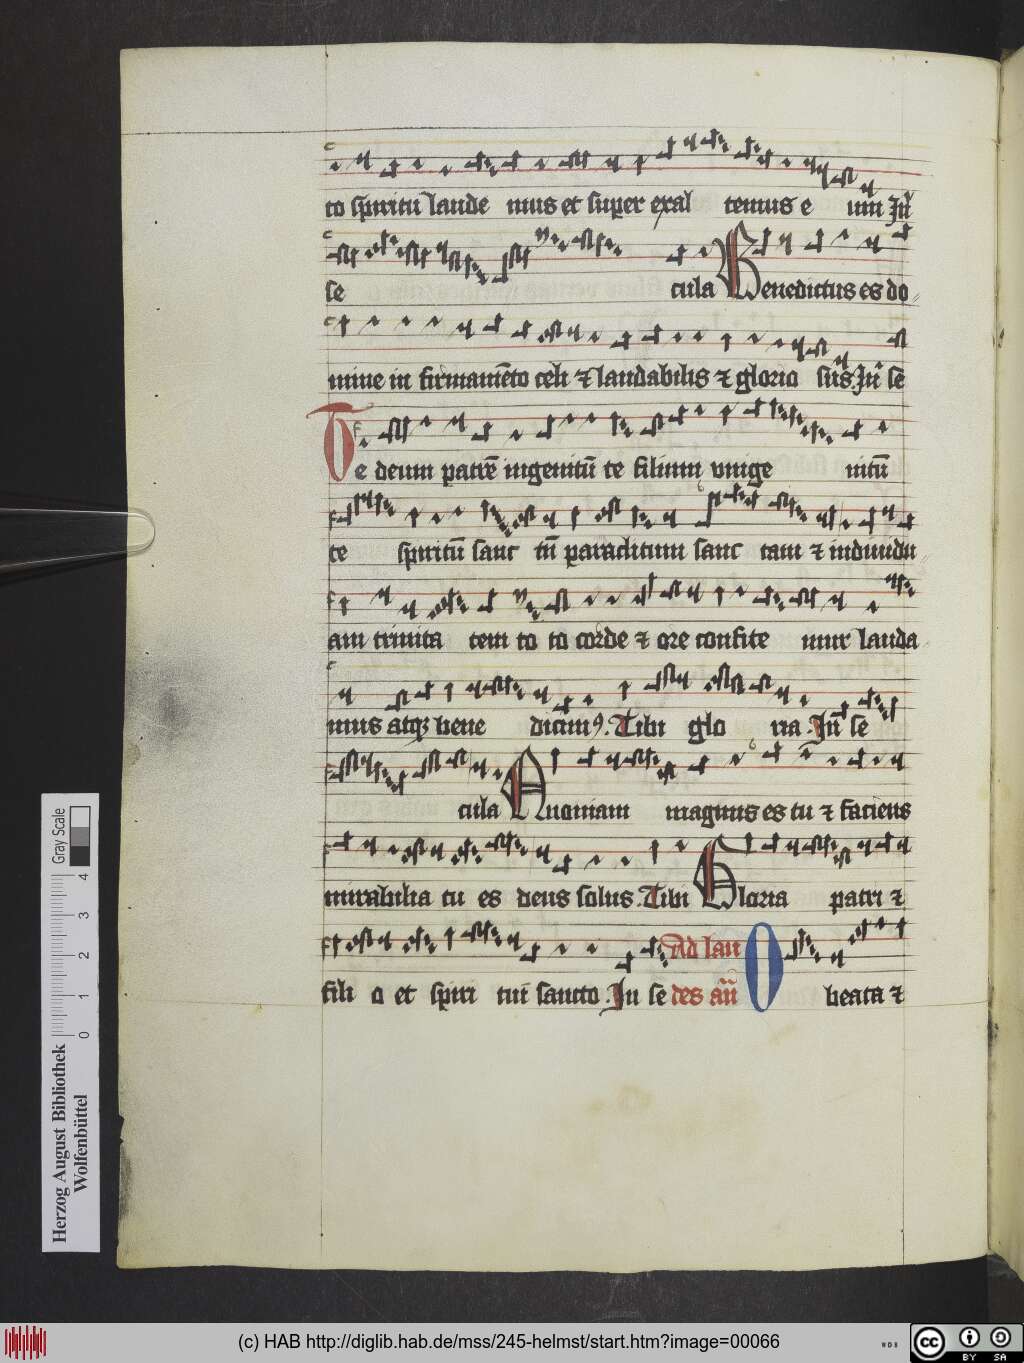 to spiritu laude mus et super exal temus e um In
se cula Benedictus es do
mine in firmamēto celi ⁊ laudabilis ⁊ gloriosus In se
Te deum patrē ingenitū te filium vnige nitū
te spiritū sanc tū paraclitum sanc tam ⁊ indiuidu
am trinita tem to to corde ⁊ ore confite mur lauda
mus atqꝫ bene dicimꝰ. Tibi glo ria. In se
cula Quoniam magnus es tu ⁊ faciens
mirabilia tu es deus solus. Tibi Gloria patri ⁊
Ad lau
fili o et spiri tui sancto. In se des an̄ O beata ⁊
Gray Scale
0 1 2 3 4
Herzog August Bibliothek
Wolfenbüttel
(c) HAB http://diglib.hab.de/mss/245-helmst/start.htm?image=00066
WDB
cc BY SA